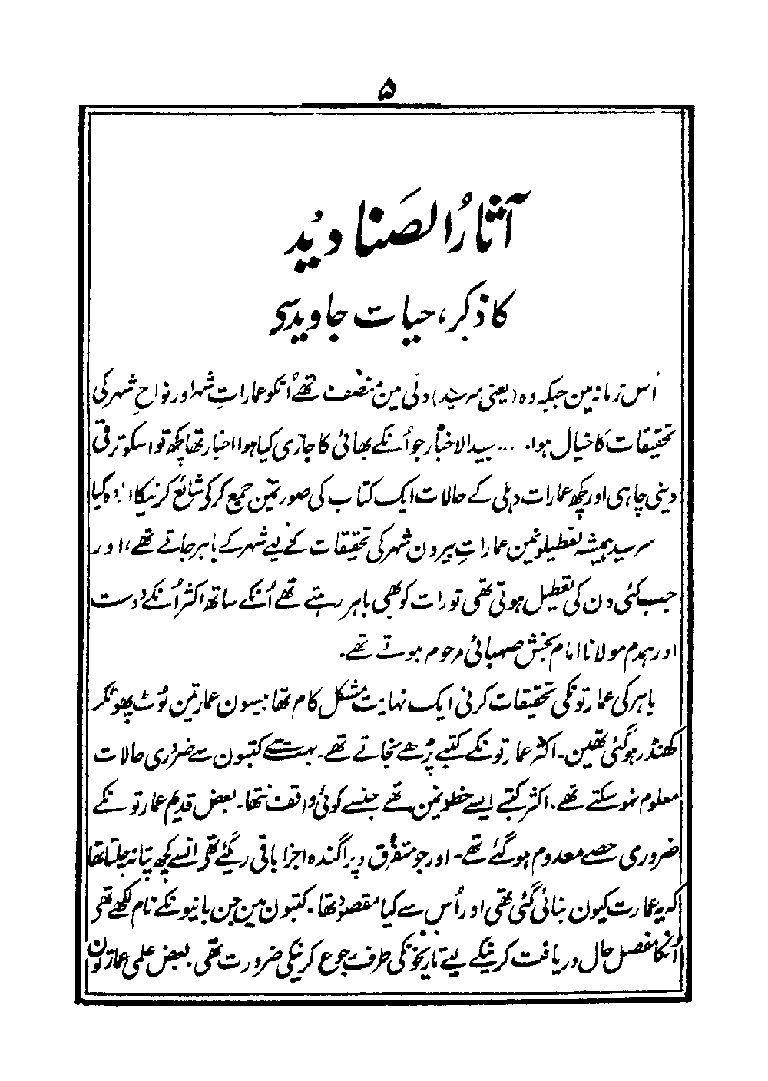 ۵
آثارُ الصَنادِید
کا ذکر، حیات جاوید سی
اُس زمانہ مین جبکہ وہ (یعنی سرسید) دلّی مین منصف تھے اُنکو عماراتِ شہر اور نواحِ شہر کی
تحقیقات کا خیال ہوا. ... سید الاخبار جو اُنکے بھائی کا جاری کیا ہوا اخبار تھا کچھ تو اسکو ترقی
دینی چاہی اور کچھ عمارات دہلی کے حالات ایک کتاب کی صورتمین جمع کرکی شائع کرنیکا ارادہ کیا
سرسید ہمیشہ تعطیلونمین عماراتِ بیرون شہر کی تحقیقات کے لیے شہر کے باہر جاتے تھے، اور
جب کئی دن کی تعطیل ہوتی تھی تو رات کو بھی باہر رہتے تھے اُنکے ساتھ اکثر اُنکے دوست
اور ہمدم مولانا امام بخش صہبائی مرحوم ہوتے تھے۔
باہر کی عمارتونکی تحقیقات کرنی ایک نہایت مشکل کام تھا بیسون عمارتین ٹوٹ پھوٹکر
کھنڈر ہوگئی تھین۔ اکثر عمارتونکے کتبے پڑھے نجاتے تھے۔ بہت سے کتبون سے ضروری حالات
معلوم نہوسکتے تھے۔ اکثر کتبے ایسے خطونمین تھے جنسے کوئی واقف نتھا۔ بعض قدیم عمارتونکے
ضروری حصے معدوم ہوگئے تھے۔ اور جو متفرق و پراگندہ اجزا باقی رہگئے تھی انسے کچھ پتا نہ چلتا تھا
کہ یہ عمارت کیون بنائی گئی تھی اور اُس سے کیا مقصود تھا۔ کتبون مین جن بانیونکے نام لکھے تھی
اُنکا مفصل حال دریافت کرنیکے لیے تاریخونکی طرف رجوع کرنیکی ضرورت تھی۔ بعض علی عمارتون